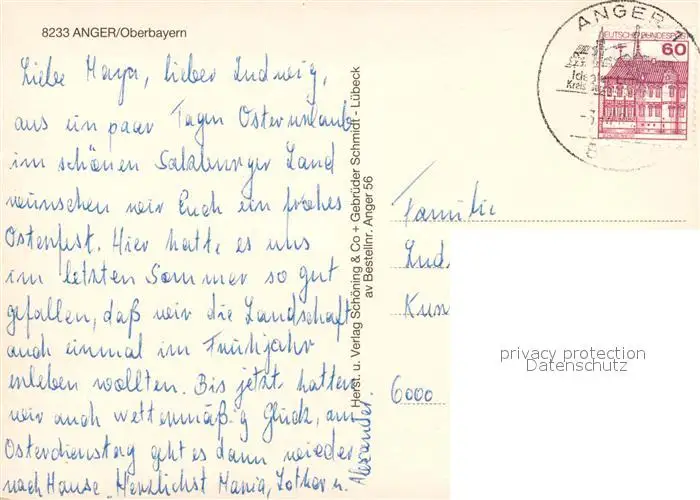 8233 ANGER/Oberbayern
Liebe Maya, lieber Ludwig,
aus ein paar Tagen Osterurlaub
im schönen Salzburger Land
wünschen wir Euch ein frohes
Osterfest. Hier hatt, es uns
im letzten Sommer so gut
gefallen, daß wir die Landschaft
auch einmal im Frühjahr
erleben wollten. Bis jetzt hatten
wir auch wettermäßig Glück, am
Osterdienstag geht es dann wieder
nach Hause. Herzlichst Maria, Lothar u.
Alexander.
Herst. u. Verlag Schöning & Co + Gebrüder Schmidt - Lübeck
av Bestellnr. Anger 56
ANGER
DEUTSCHE BUNDESPOST
60
Familie
Lud
Kun
6000
privacy protection
Datenschutz